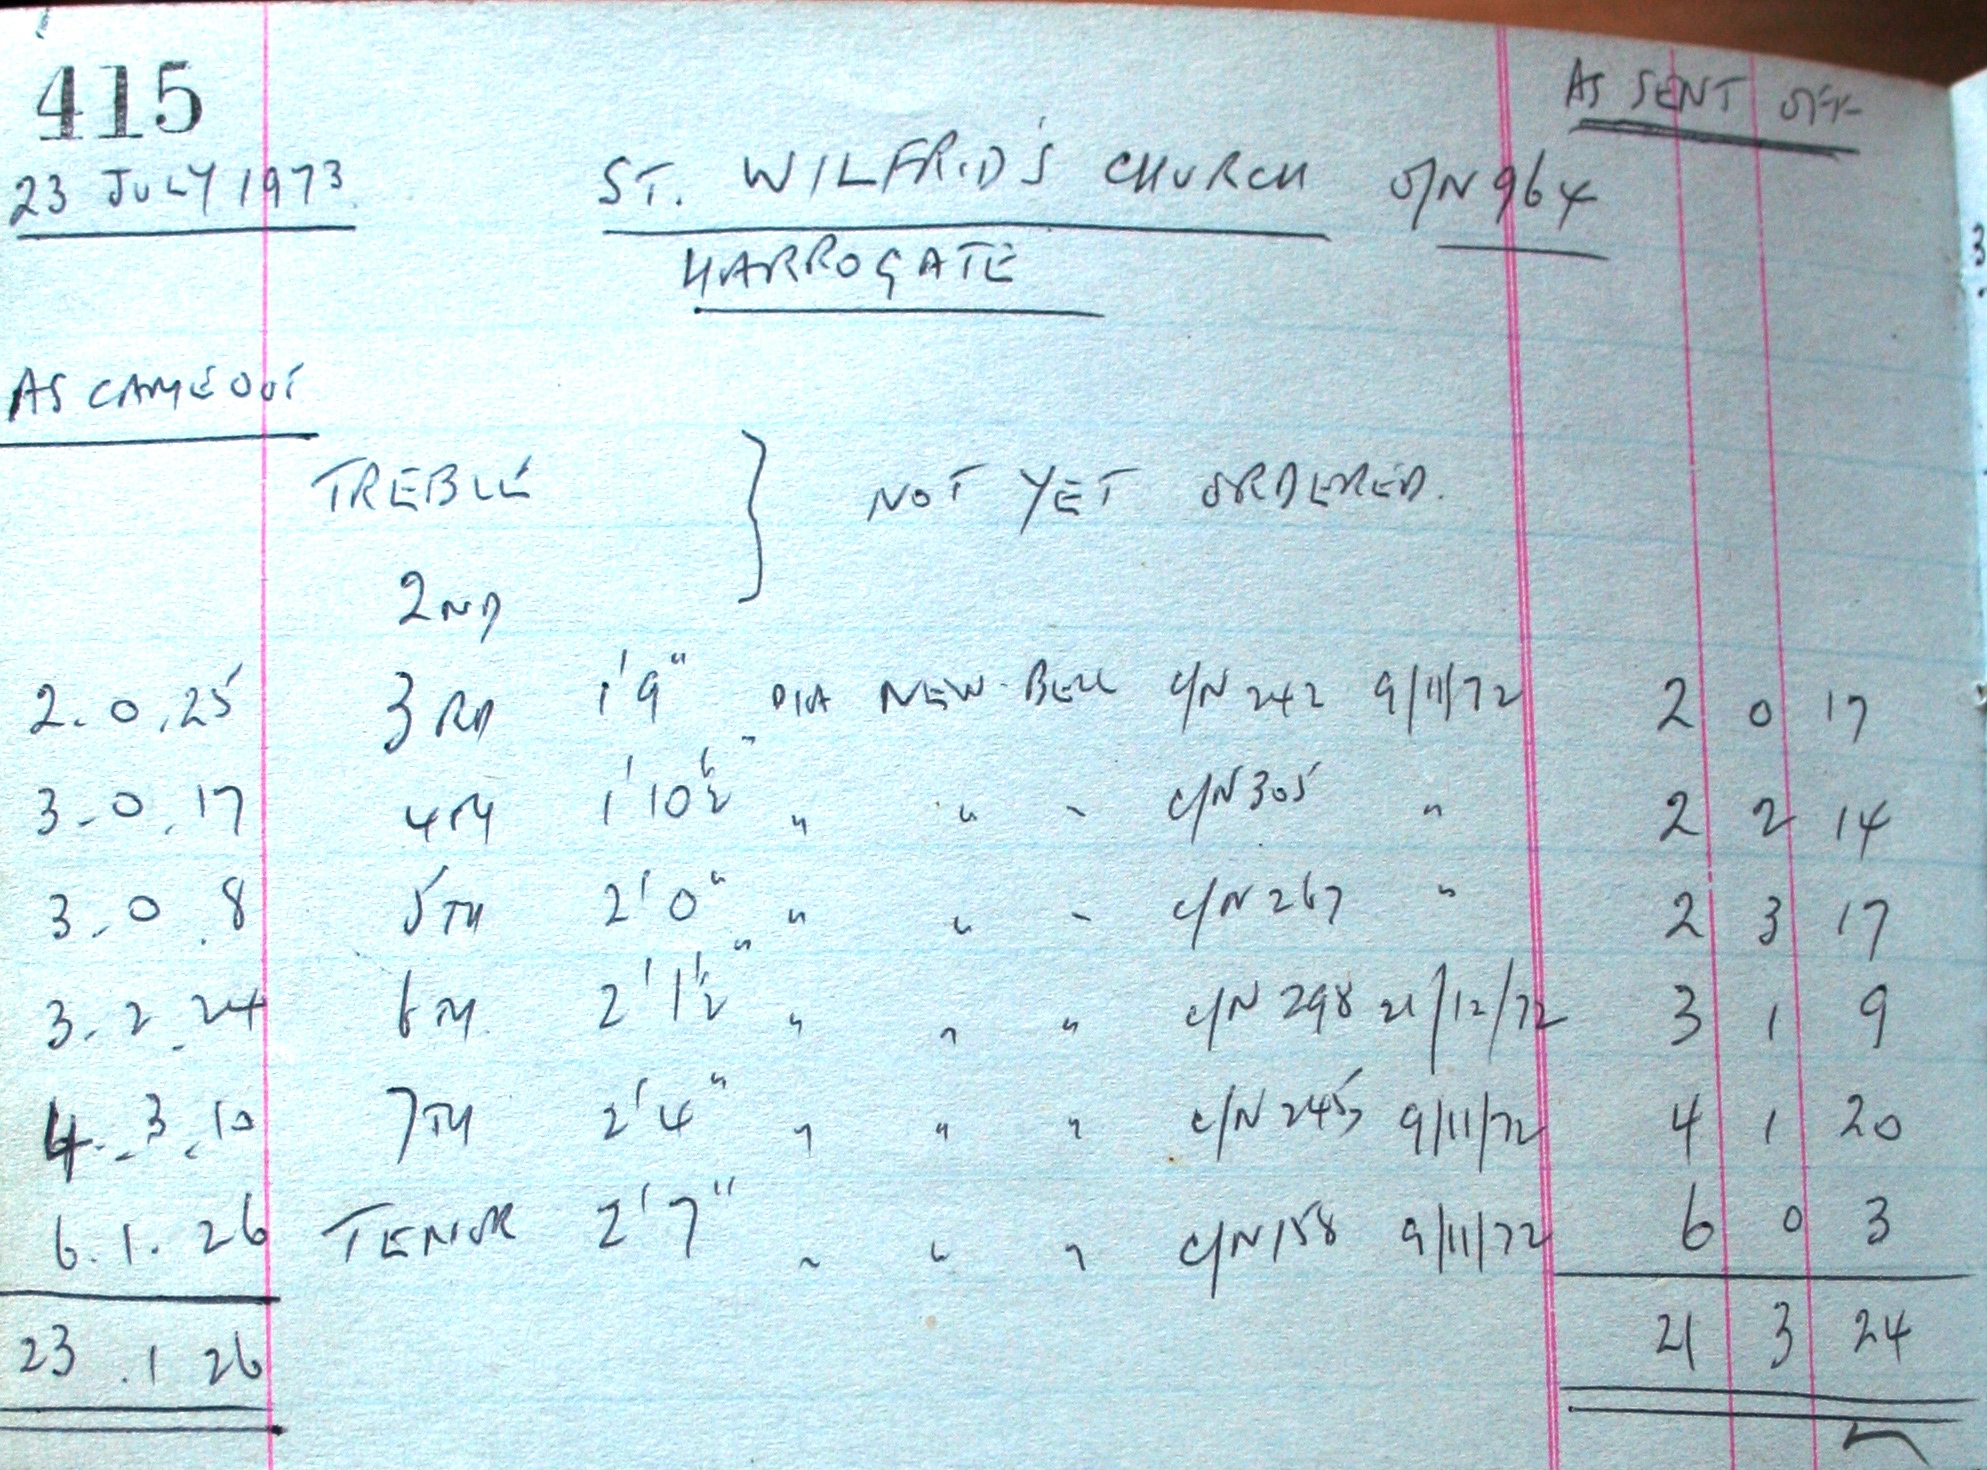 415
AS SENT OFF
23 JULY 1973 ST. WILFRID'S CHURCH O/N 964
HARROGATE
AS CAME OUT
TREBLE } NOT YET ORDERED.
2ND
2.0.25 3RD 1'9" DIA NEW BELL C/N 242 9/11/72 2 0 17
3.0.17 4TH 1'10½" " " " C/N 305 " 2 2 14
3.0.8 5TH 2'0" " " " C/N 267 " 2 3 17
3.2.24 6TH 2'1½" " " " C/N 298 21/12/72 3 1 9
4.3.10 7TH 2'4" " " " C/N 245 9/11/72 4 1 20
6.1.26 TENOR 2'7" " " " C/N 158 9/11/72 6 0 3
23.1 26 21 3 24